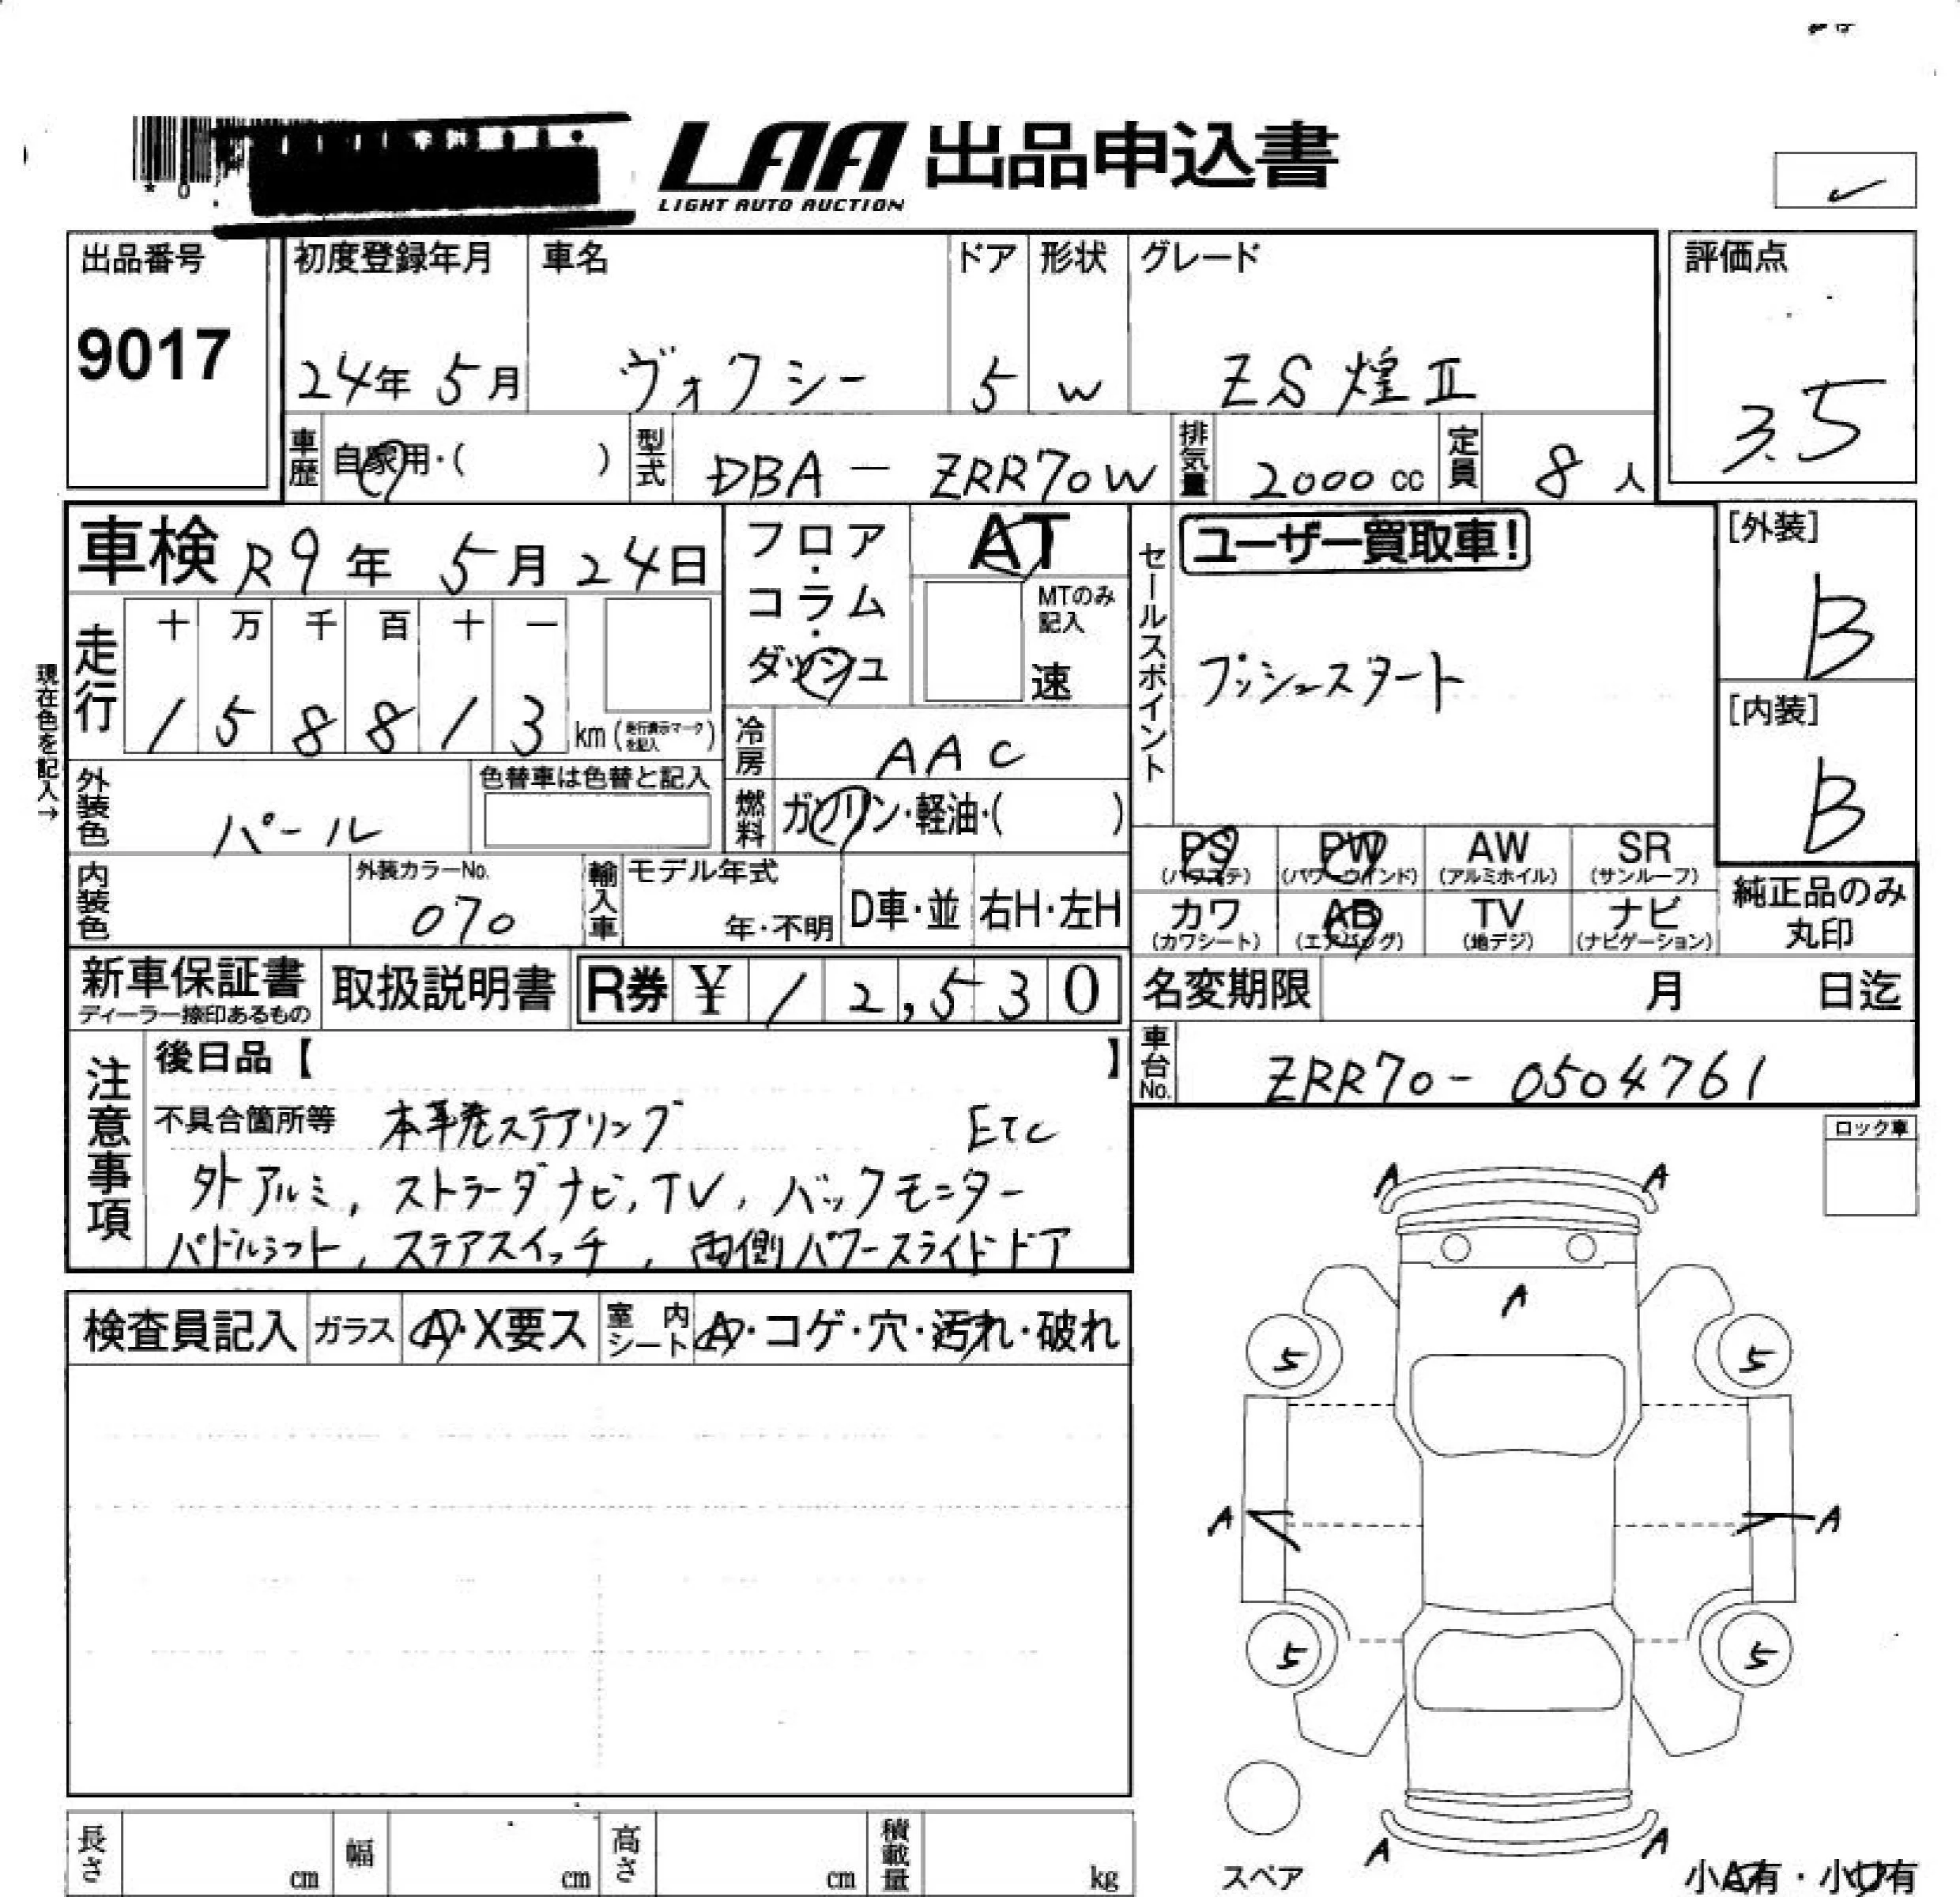 LAA 出品申込書
LIGHT AUTO AUCTION
* 0
出品番号
9017
初度登録年月
24年 5月
車名
ヴォクシー
ドア
5
形状
W
グレード
ZS 煌 II
評価点
3.5
車歴 自家用・( )
型式 DBA - ZRR70W
排気量 2000 cc
定員 8 人
車検 R9年 5月 24日
走行
十 万 千 百 十 一
1 5 8 8 1 3 km (走行表示マークを記入)
現在色を記入→
フロア・コラム・ダッシュ
AT
MTのみ記入
速
冷房 AAC
燃料 ガソリン・軽油・( )
セールスポイント
ユーザー買取車!
プッシュスタート
[外装]
B
[内装]
B
外装色 パール
色替車は色替と記入
内装色
外装カラーNo.
070
輸入車
モデル年式
年・不明
D車・並
右H・左H
PS (パワステ)
PW (パワーウインド)
AW (アルミホイル)
SR (サンルーフ)
カワ (カワシート)
AB (エアバッグ)
TV (地デジ)
ナビ (ナビゲーション)
純正品のみ
丸印
新車保証書
ディーラー捺印あるもの
取扱説明書
R券 ¥ 12,530
名変期限 月 日迄
車台No. ZRR70-0504761
注意事項
後日品【 】
不具合箇所等 本革巻ステアリング ETC
外アルミ, ストラーダナビ, TV, バックモニター
パドルシフト, ステアスイッチ, 両側パワースライドドア
ロック車
検査員記入 ガラス A・X要ス 室内シート A・コゲ・穴・汚れ・破れ
A A
A
5 5
A A
5 5
A A
スペア
小A有・小U有
長さ cm
幅 cm
高さ cm
積載量 kg